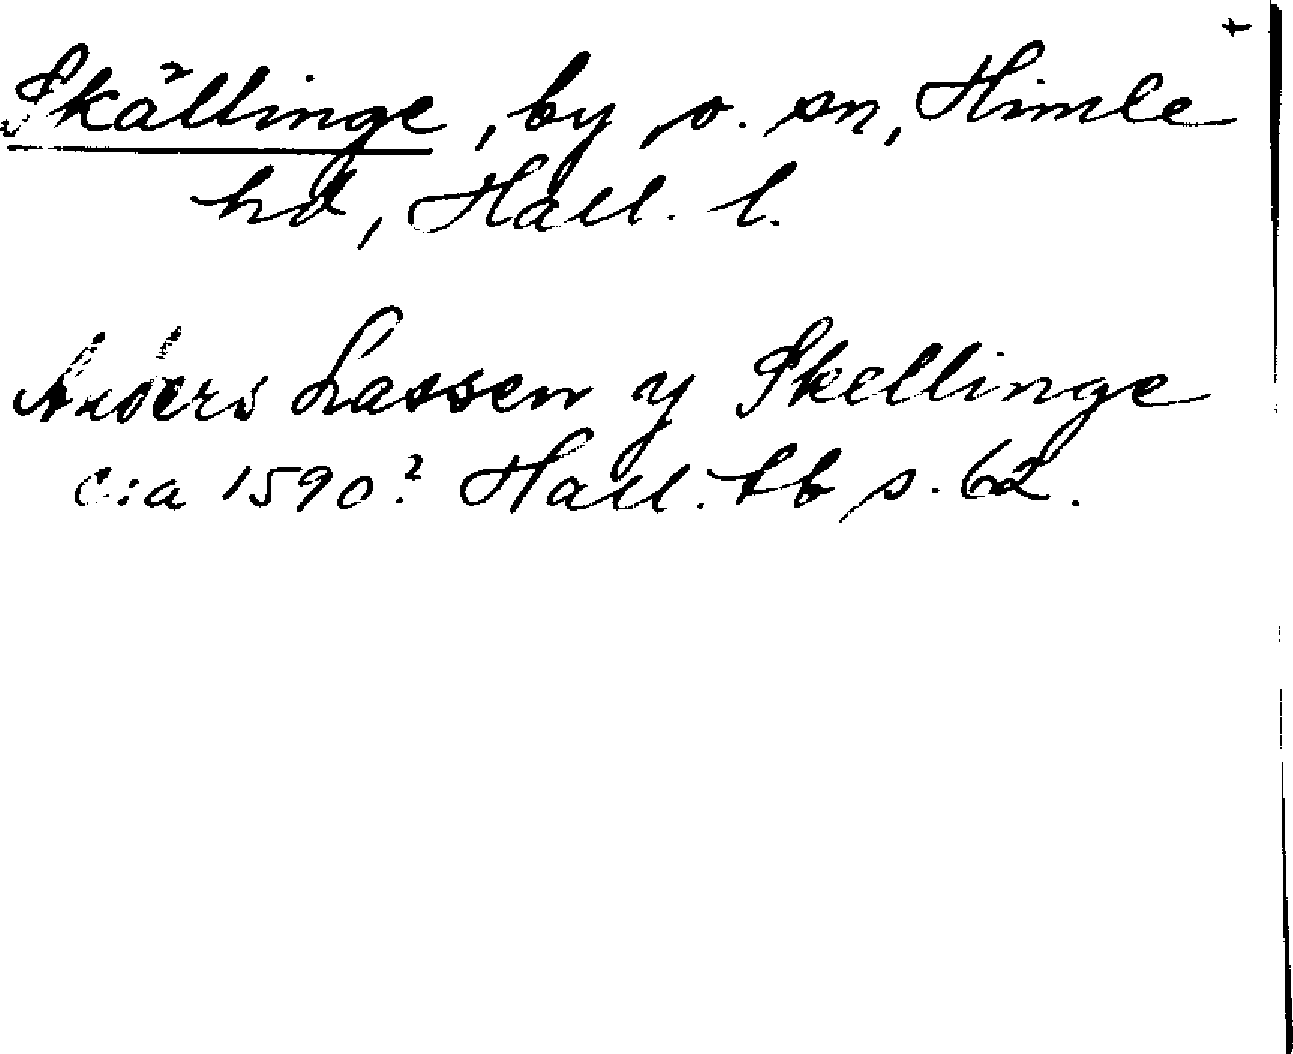 Skällinge, by, o. sn, Himle
hd, Hall. l.
Anders Lassen y Skellinge
c:a 1590? Hall. tb s. 62.